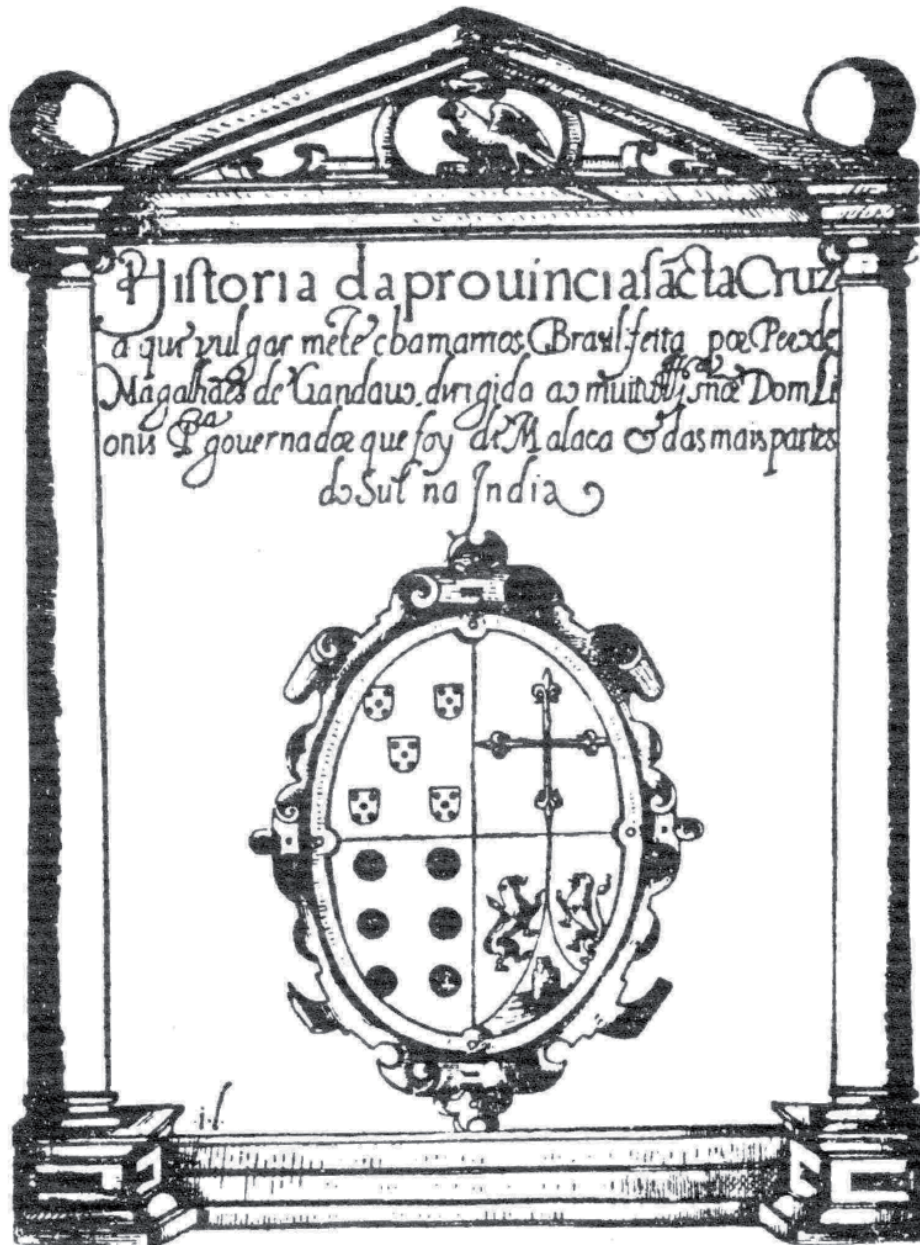 Historia da prouincia sãcta Cruz
a que vulgar mẽte chamamos Brasil: feita por Pero de
Magalhães de Gandauo, dirigida ao muito Illsñor Dom Li
onis Pra gouernador que foy de Malaca & das mais partes
do Sul na India